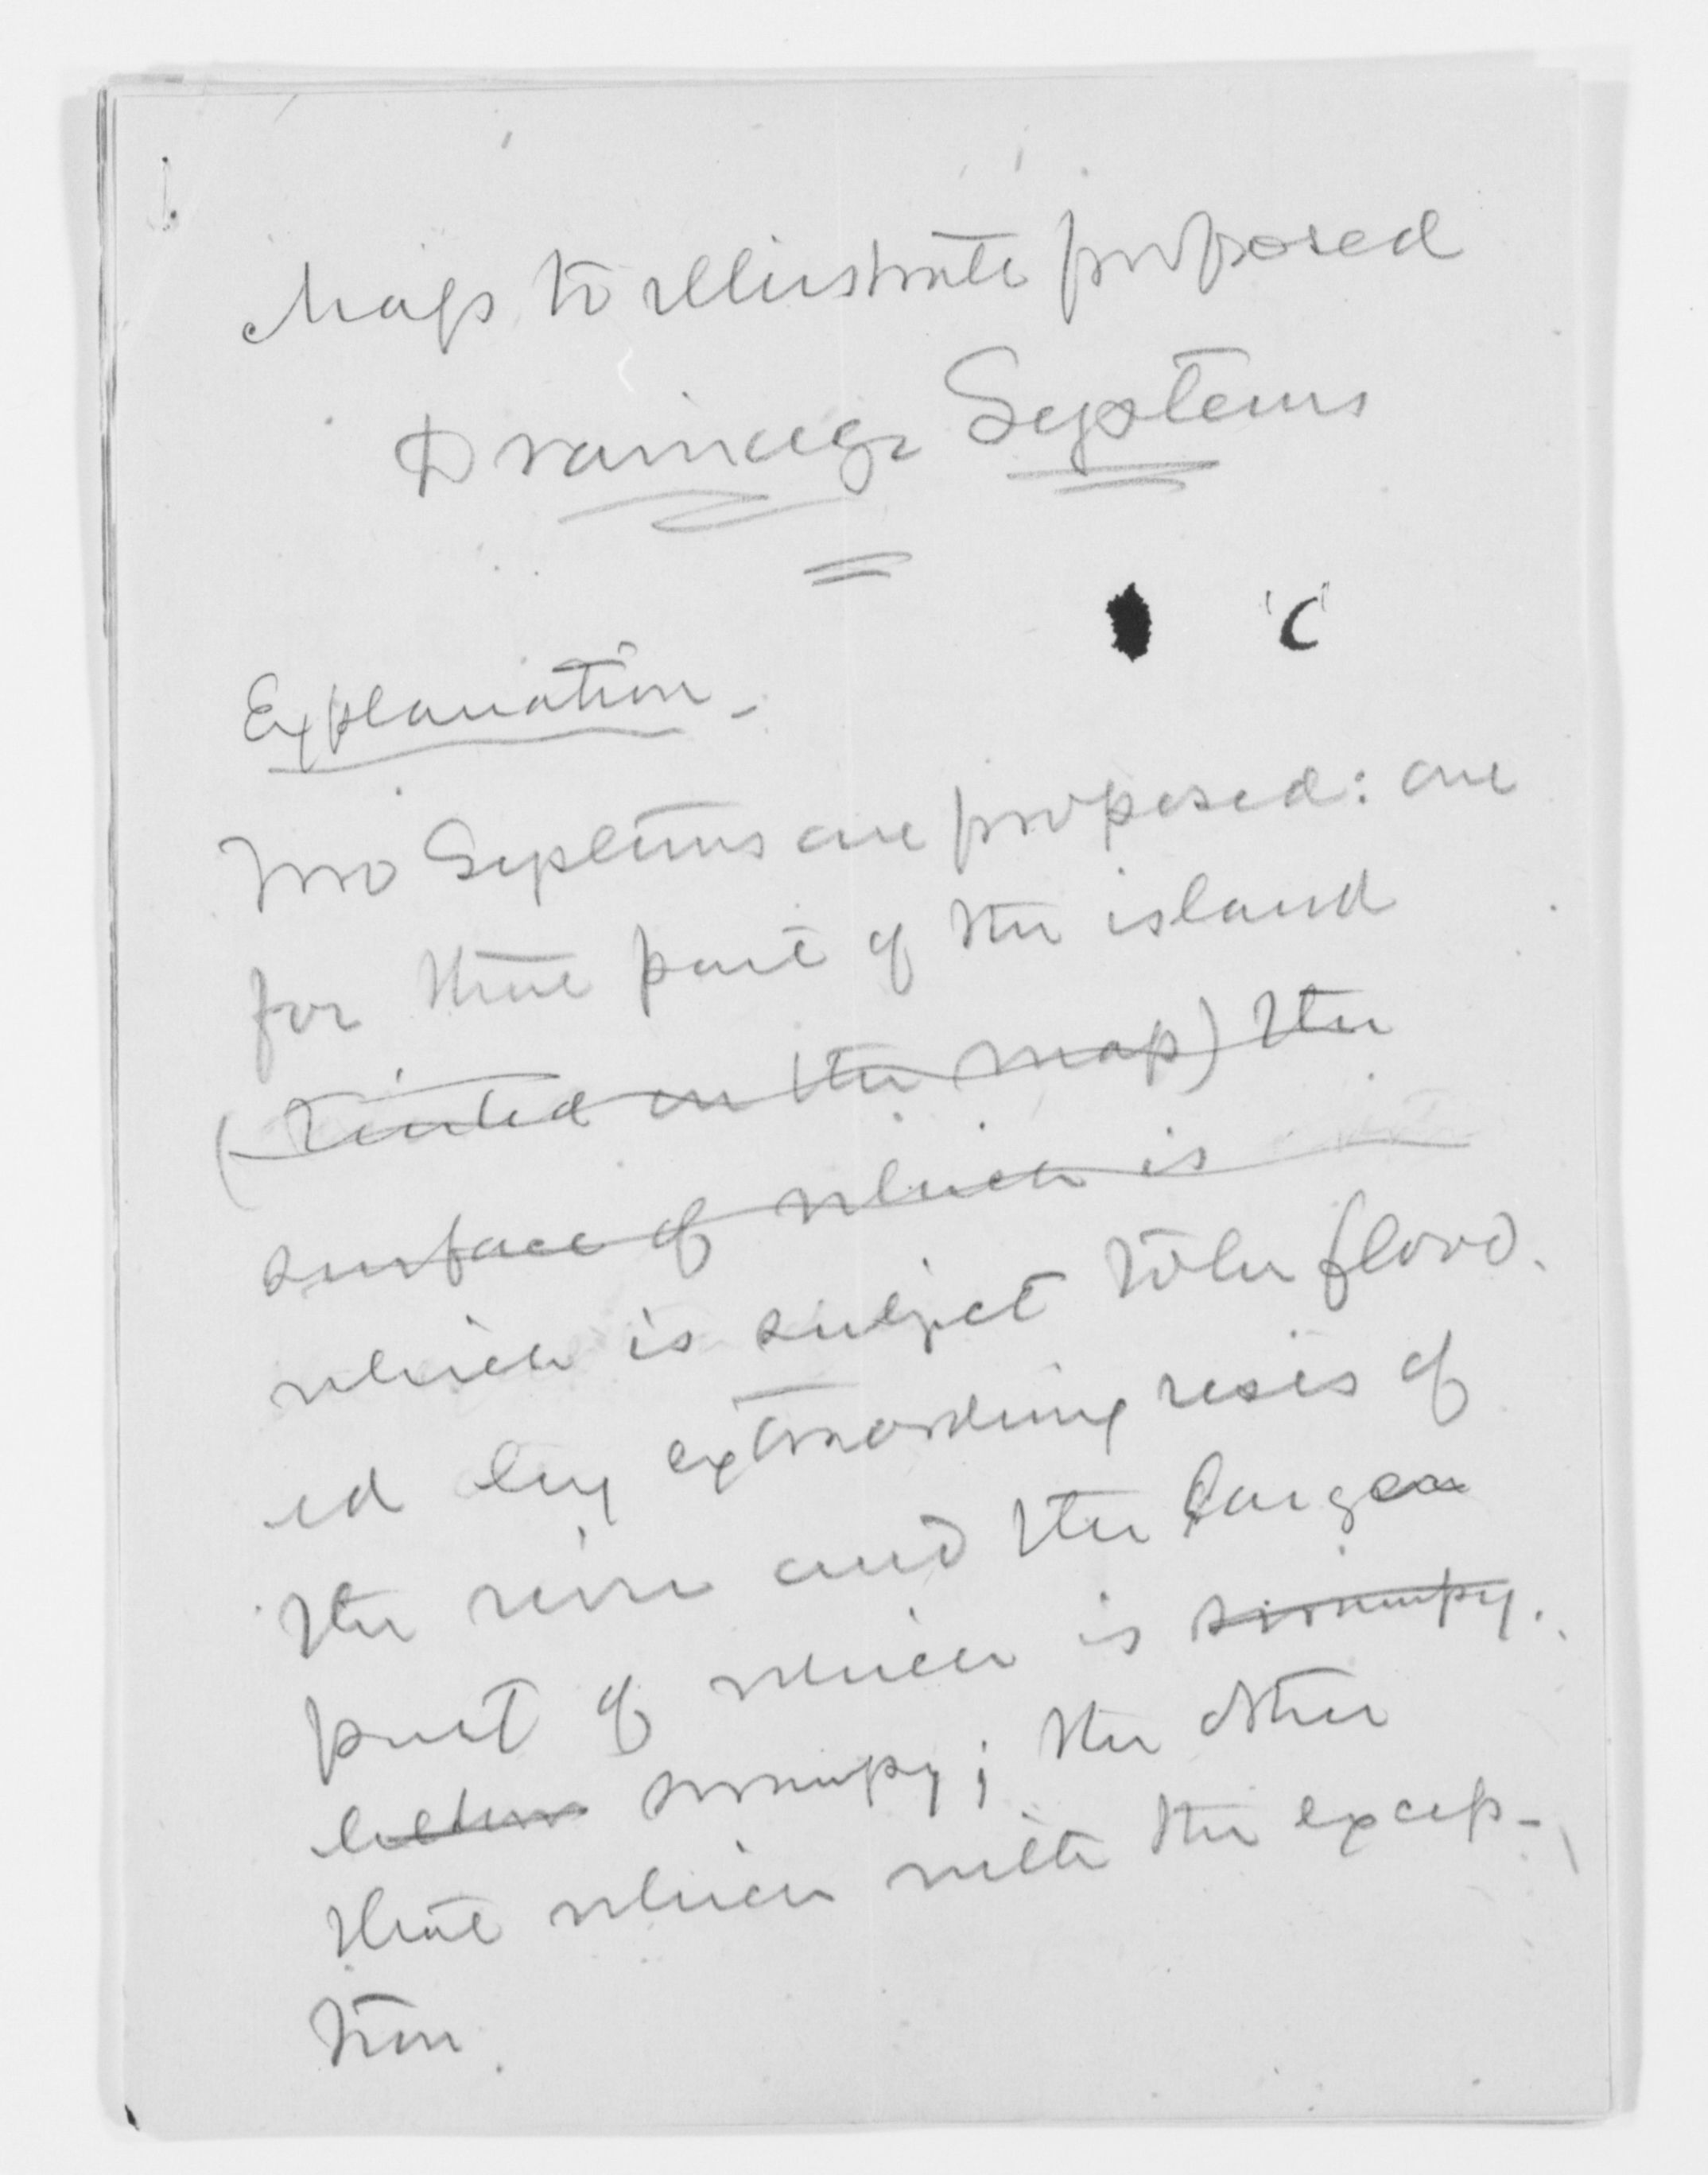 Map to illustrate proposed
Drainage Systems
"C"
Explanation -
Two Systems are proposed: one
for that part of the island
(tinted on the map) the
surface of which is
which is subject to be flood-
ed by extraordiny rises of
the river and the larger
part of which is swampy.
swampy; the other
that which with the excep-
tion